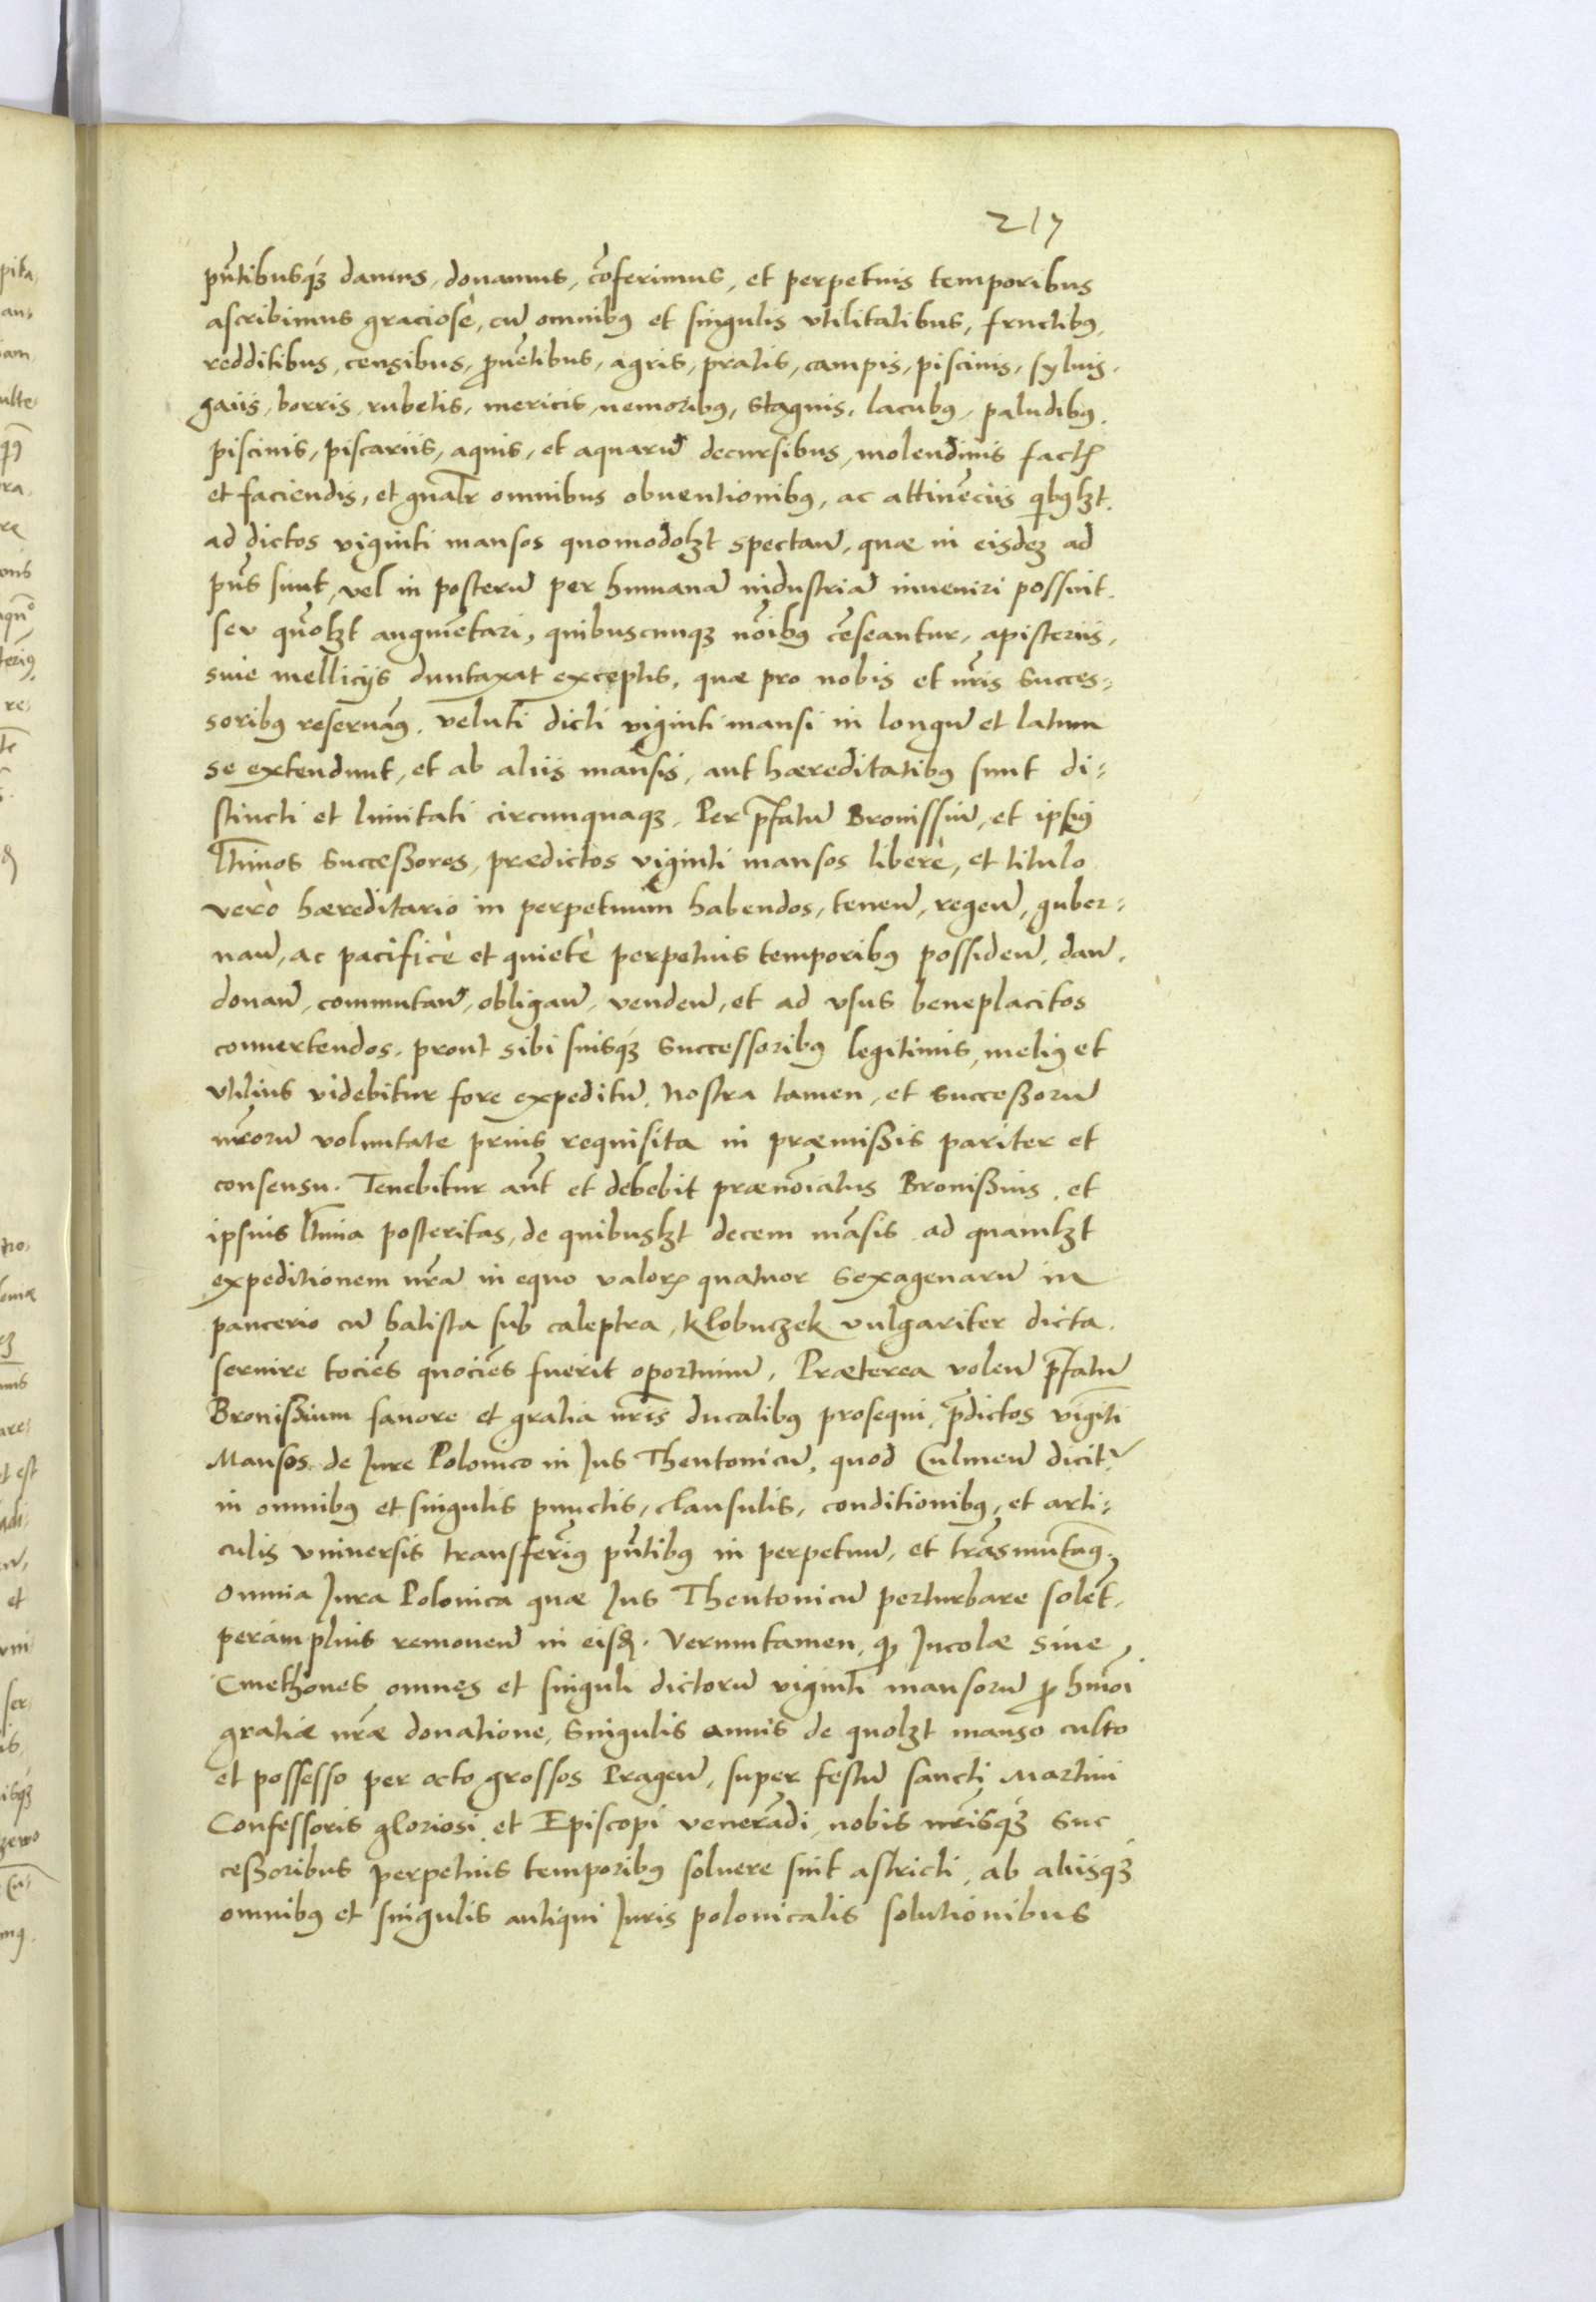 217
pñtibusq́ȝ damus, donamus, cōferimus, et perpetuis temporibus
ascribimus graciosè, cū omnibꝫ et singulis vtilitatibus, fructibꝫ,
redditibus, censibus, ꝓuētibus, agris, pratis, campis, piscinis, syluis,
gaiis, borris, rubetis, mericis, nemoribꝫ, stagnis, lacubꝫ, paludibꝫ,
piscinis, piscariis, aquis, et aquarū decursibus, molendinis factꝭ
et faciendis, et gñalr omnibus obuentionibꝫ, ac attinēciis qͥbꝫlꝫt,
ad dictos viginti mansos quomodolꝫt spectañ, quæ in eisdeꝫ ad
pñs sunt, vel in posterū per humanā industriā inueniri possint,
seu quōlꝫt augmētari, quibuscunqꝫ nōibꝫ cēseantur, apisteriis,
siue mellicijs duntaxat exceptis, quæ pro nobis et nr̃is succes-
soribꝫ reseruāꝫ. veluti dicti viginti mansi in longū et latum
se extendunt, et ab aliis mansis, aut hæreditatibꝫ sunt di-
stincti et limitati circunquaqꝫ. Per p̄fatū Bronissiū, et ipsiꝫ
l̃timos successores, prædictos viginti mansos liberè, et titulo
verò hæreditario in perpetuum habendos, teneñ, regeñ, guber-
nañ, ac pacificè et quietè perpetuis temporibꝫ possideñ, dañ,
donañ, commutañ, obligañ, vendeñ, et ad vsus beneplacitos
conuertendos, prout sibi suisq́ꝫ successoribꝫ legitimis, meliꝫ et
vtilius videbitur fore expeditū. Nostra tamen, et successorū
nr̃orū voluntate prius requisita in præmissis pariter et
consensu. Tenebitur aūt et debebit prænōiatus Bronissius, et
ipsius l̃tima posteritas, de quibuslꝫt decem māsis ad quamlꝫt
expeditionem nr̃ā in equo valorꝭ quatuor sexagenarū in
pancerio cū balista sub caleptra, Klobuczek vulgariter dicta,
seruire tociēs quociēs fuerit oportunū. Præterea voleñ p̄fatū
Bronissium fauore et gratia nr̃is ducalibꝫ prosequi, p̄dictos vigīti
Mansos de Iure Polonico in Ius Theutonicū, quod Culmeñ dicitʳ
in omnibꝫ et singulis punctis, clausulis, conditionibꝫ, et arti-
culis vniuersis transferiꝫ pñtibꝫ in perpetuū, et trāsmutāꝫ.
Omnia Iura Polonica quæ Ius Theutonicū perturbare solēt,
perámplius remoueñ in eisdꝭ. Veruntamen, ꝙ Incolæ siue
Cmethones omnes et singuli dictorū viginti mansorū ꝓ hmōi
gratiæ nr̃æ donatione, singulis annis de quolꝫt manso culto
et possesso per octo grossos Prageñ, super festū sancti Martini
Confessoris gloriosi et Episcopi venerādi, nobis nr̃isq́ꝫ suc
cessoribus perpetuis temporibꝫ soluere sint astricti, ab aliisq́ꝫ
omnibꝫ et singulis antiqui Iuris polonicalis solutionibus